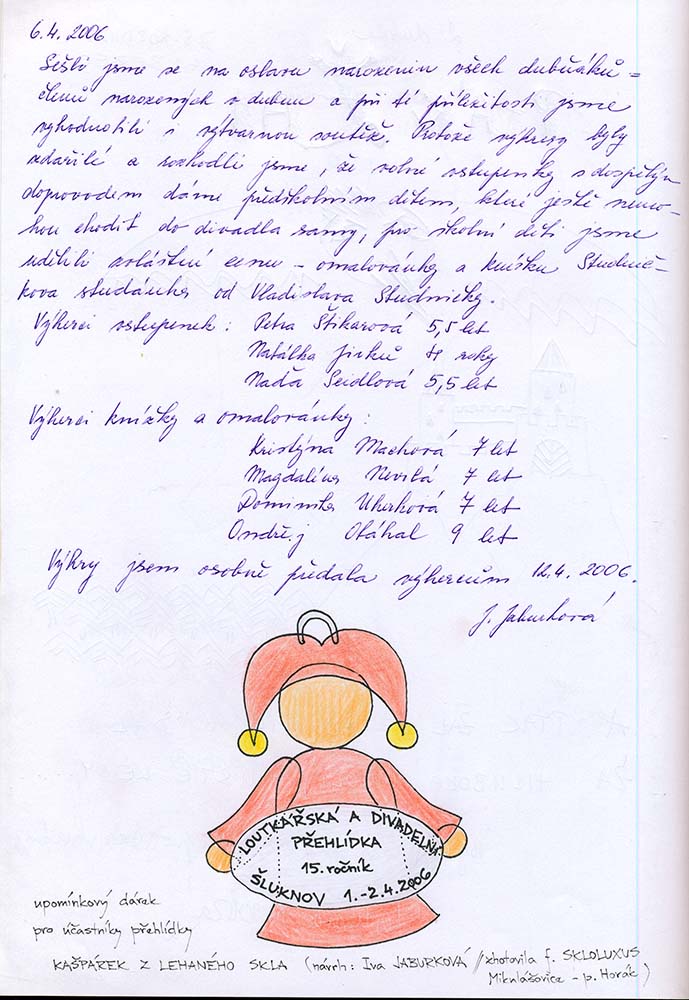 6.4. 2006
Sešli jsme se na oslavu narozenin všech dubňáků =
členů narozených v dubnu a při té příležitosti jsme
vyhodnotili i výtvarnou soutěž. Protože výkresy byly
zdařilé a rozhodli jsme, že volné vstupenky s dospělým
doprovodem dáme předškolním dětem, které ještě nemo-
hou chodit do divadla samy, pro školní děti jsme
udělili zvláštní cenu - omalovánky a knížku Studnič-
kova studánka od Vladislava Studničky.
Výherci vstupenek : Petra Štikarová 5,5 let
Natálka Jirků 4 roky
Naďa Seidlová 5,5 let
Výherci knížky a omalovánky :
Kristýna Machová 7 let
Magdaléna 7 let
Dominika Uherková 7 let
Ondřej Otáhal 9 let
Výhry jsem osobně předala výhercům 12.4. 2006.
J. Jaburková
LOUTKÁŘSKÁ A DIVADELNÍ
PŘEHLÍDKA
15. ročník
ŠLUKNOV 1.-2.4.2006
upomínkový dárek
pro účastníky přehlídky
KAŠPÁREK Z LEHANÉHO SKLA (návrh: Iva JABURKOVÁ // zhotovila f. SKLOLUXUS
Mikulášovice - p. Horák)